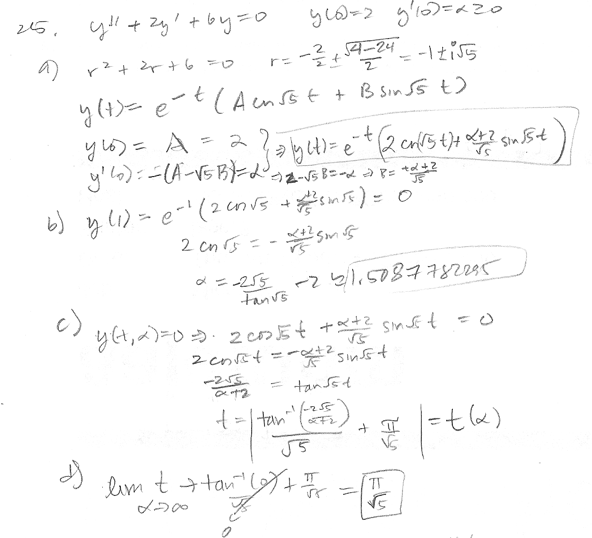 25. y'' + 2y' + 6y = 0 y(0)=2 y'(0)=α≥0
a) r² + 2r + 6 = 0 r = -2/2 ± √(4-24)/2 = -1 ± i√5
y(t) = e^-t (A cos √5 t + B sin √5 t)
y(0) = A = 2 } ⇒ y(t) = e^-t (2 cos(√5 t) + (α+2)/√5 sin √5 t)
y'(0) = -(A-√5B) = α ⇒ 2-√5B = -α ⇒ B = (+α+2)/√5
b) y(1) = e^-1 (2 cos √5 + (α+2)/√5 sin √5) = 0
2 cos √5 = - (α+2)/√5 sin √5
α = -2√5/tan √5 - 2 ≅ 1.5087782295
c) y(t,α)=0 ⇒ 2 cos √5 t + (α+2)/√5 sin √5 t = 0
2 cos √5 t = - (α+2)/√5 sin √5 t
-2√5/(α+2) = tan √5 t
t = | tan^-1(-2√5/(α+2))/√5 + π/√5 | = t(α)
d) lim α→∞ t → tan^-1(0)/√5 + π/√5 = π/√5
0